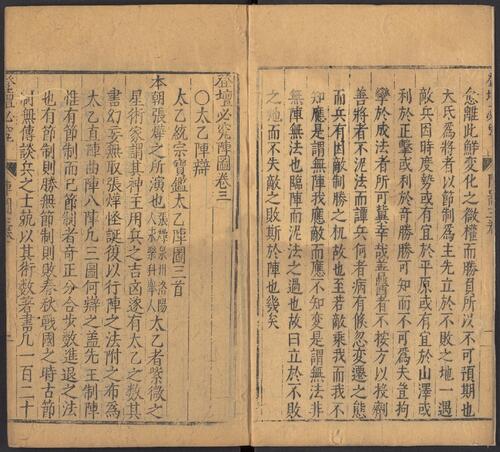 怠離此鮮變化之微權而勝負所以不可預期也
大氐為將者以節制為主先立於不敗之地一遇
敵兵因時度勢或有宜於平原或有宜於山澤或
利於正擊或利於奇勝勝可知而不可為夫豈拘
攣於成法者所可冀幸哉善醫者不按方以投劑
善將者不泥法而譚兵何者病有倏忽變遷之態
而兵有因敵制勝之机故也至若敵乘我而我不
知應是謂無陣我應敵而應不知變是謂無法非
無陣無法也臨陣而泥法之過也故曰立於不敗
之地而不失敵之敗斯於陣也幾矣
登壇必究陣圖卷三
○太乙陣辯
太乙統宗寶鑑太乙陣圖三首
本朝張燁之所演也張燁泉州洛陽人永樂科舉人太乙者紫微之
星術家謂其神王用兵之吉凶遂有太乙之數其
書幻妄無取張燁怪誕復以行陣之法附之布為
太乙直陣曲陣八陣凡三圖何辯之蓋先王制陣
惟有節制而已節制者奇正分合步數進退之法
也有節制則勝無節制則敗春秋戰國之時古節
制無傳談兵之士孰以其術數著書凡一百二十
登壇必究